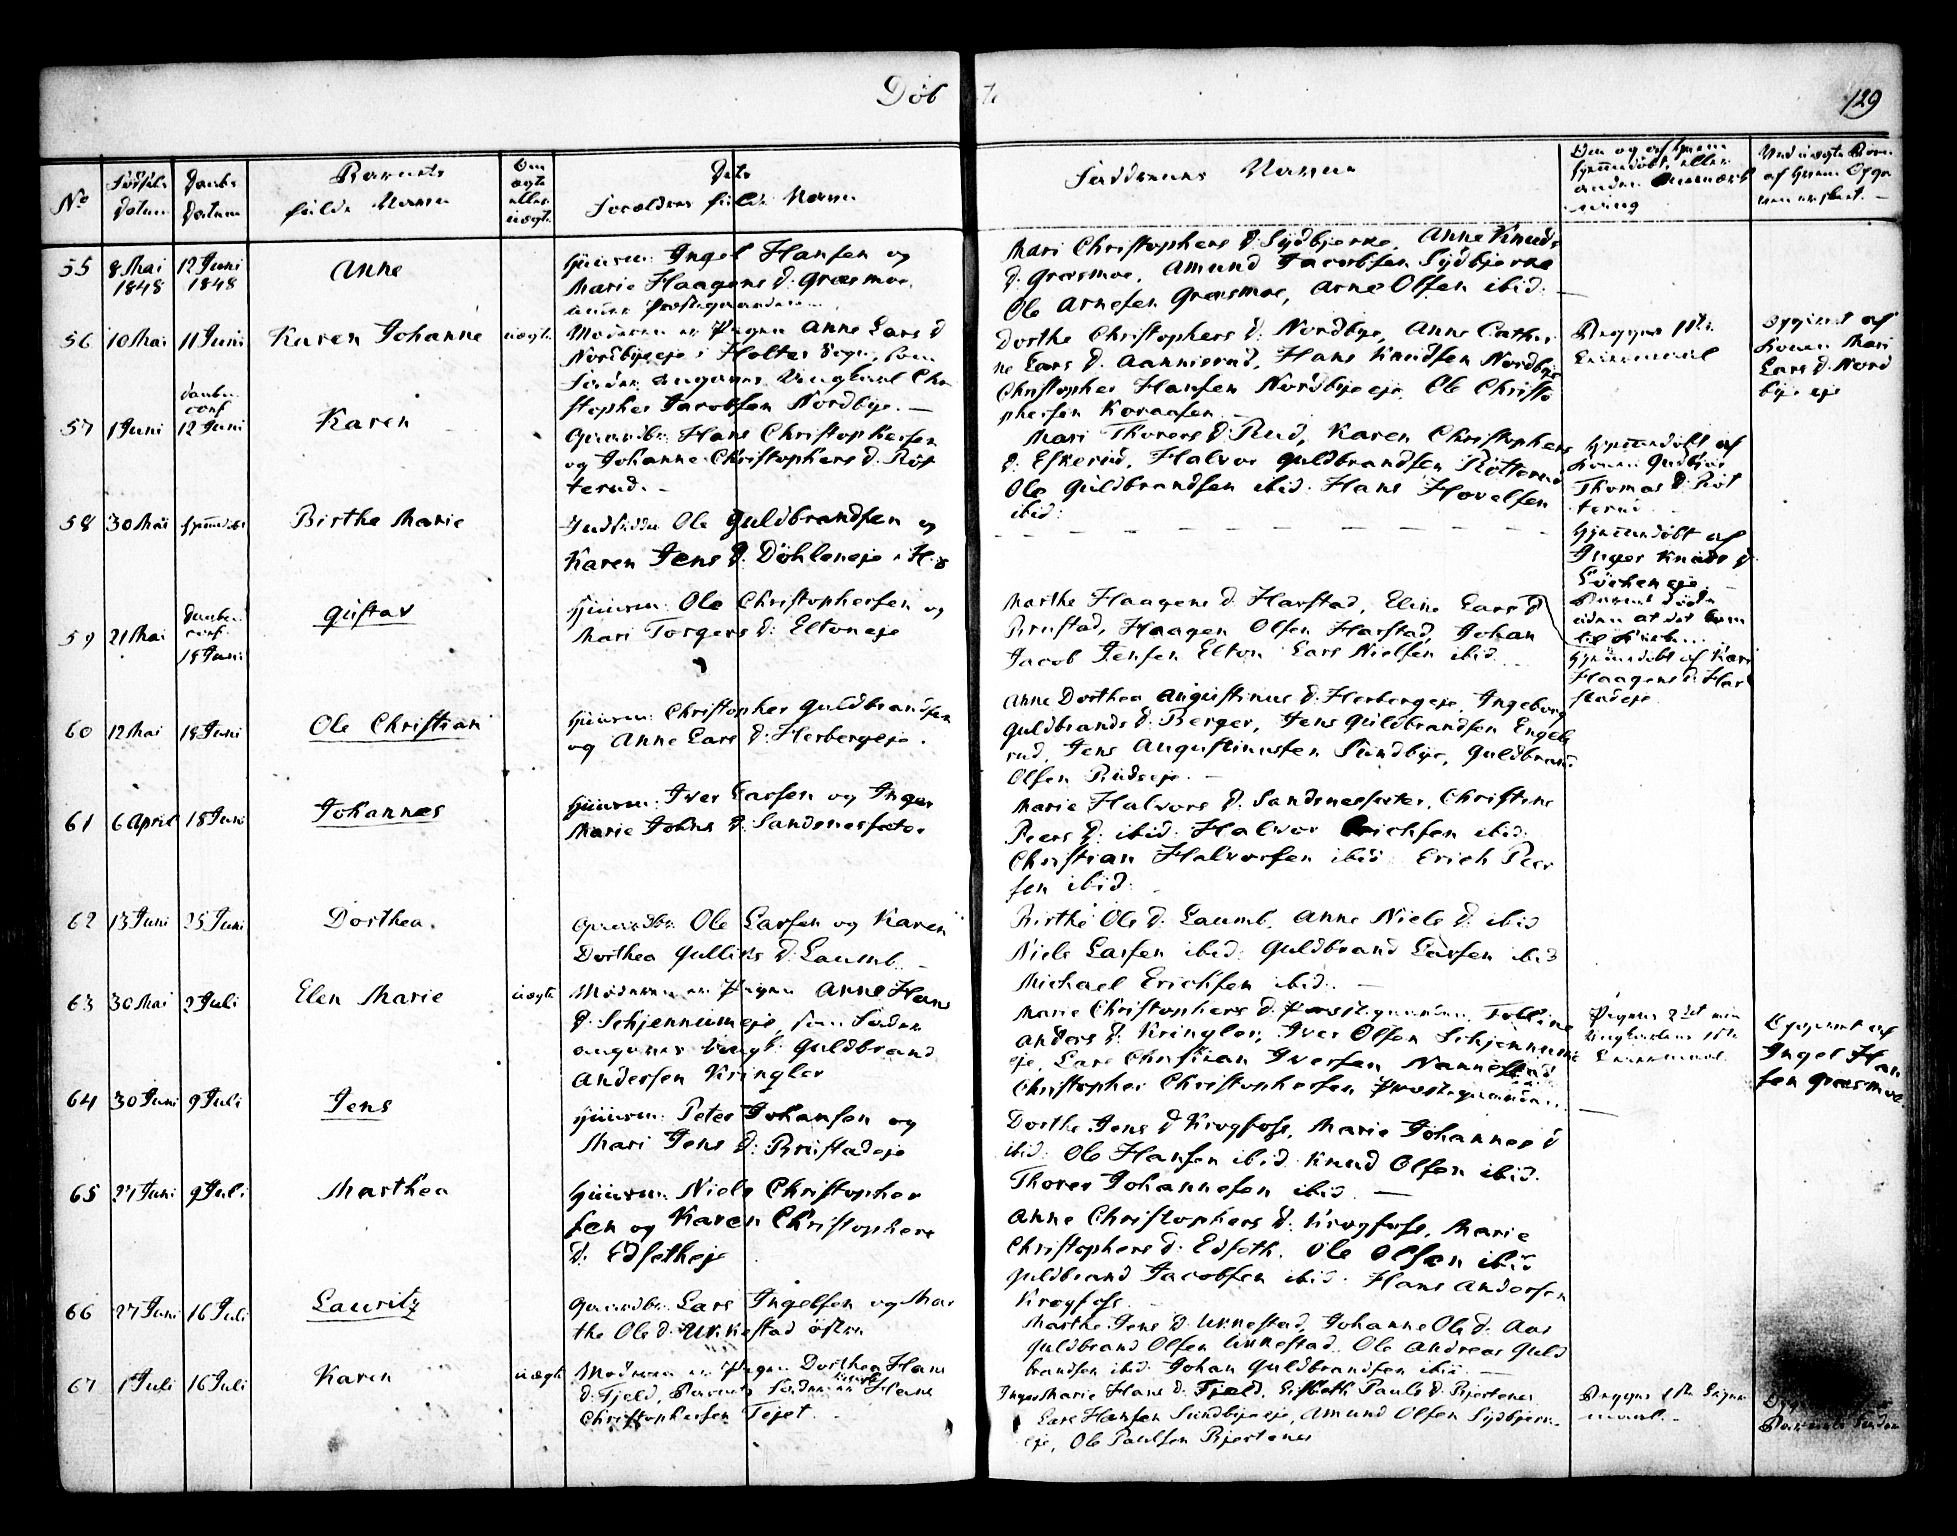 Døb
129
No
Fødsels Datum
Daabs Datum
Barnets fulde Navn
Om ægte eller uægte
Dets Forældres fulde Navne
Faddernes Navne
55
8 Mai 1848
12 Juni 1848
Anne
Huusm: Ingel Hansen og
Marie Haagens D: Græsmoe
Mari Christophers D: Sydbjerke, Anne Knuds
D: Græsmoe, Amund Jacobsen Sydbjerke
Ole Arnesen Græsmoe, Arne Olsen ibid:
56
10 Mai
11 Juni
Karen Johanne
uægte
Moderen er Pigen Anne Lars D
Nordbyeeje i Holter Sogn, som
Fader angaves Ungkarl Chri
stopher Jacobsen Nordbye. —
Dorthe Christophers D: Nordbye, Anne Cathri
ne Lars D: Aannerud, Hans Knudsen Nordbye
Christopher Hansen Nordbyeeje, Ole Christo
phersen Koraasen
Begges 1ste
Leiermaal
Opgivet af
Konen Mari
Lars D. Nord
byeeje
57
1 Juni
Daabs conf 12 Juni
Karen
Gaardbr: Hans Christophersen
og Johanne Christophers D. Röt
terud. —
Mari Thorers D: Rud, Karen Christophers
D: Eskerud, Halvor Guldbrandsen Rötterud
Ole Guldbrandsen ibid: Hans Hovelsen
ibid:
Hjemmedøbt af
Konen
Thomas D: Röt
terud
58
30 Mai
hjemmedøbt
Birthe Marie
Inderster Ole Guldbrandsen og
Karen Jens D: Döhleneje
Hjemmedøbt af
Inger Knuds D:
Barnet döde
uden at det kom
til Kirken
59
21 Mai
Daabs conf. 18 Juni
Gustav
Huusm: Ole Christophersen og
Mari Torgers D: Eltoneje
Marthe Haagens D: Harstad, Eline Lars D
Brustad, Haagen Olsen Harstad, Johan
Jacob Jensen Elton Lars Nielsen ibid
Hjemmedøbt af Kari
Haagens D: Har
stadeje
60
12 Mai
18 Juni
Ole Christian
Huusm: Christopher Guldbrandsen
og Anne Lars D: Herbergeje.
Anne Dorthea Augustinus D: Herbergeje, Ingeborg
Guldbrands D: Berger, Jens Guldbrandsen Engeb
rud, Jens Augustinussen Sundbye, Guldbrand
Olsen Rudseje. —
61
6 April
18 Juni
Johannes
Huusm: Iver Larsen og Inger
Marie Johns D: Sandnesseter
Marie Halvors D: Sandnesseter, Christine
Peers D: ibid: Halvor Erichsen ibid:
Christian Halvorsen ibid: Erich Peer
sen ibid:
62
13 Juni
25 Juni
Dorthea.
Gaardbr: Ole Larsen og Karen
Dorthea Gulliks D: Laumb. —
Birthe Ole D: Laumb, Anne Niels D: ibid
Niels Larsen ibid: Guldbrand Larsen ibid
Michael Erichsen ibid: —
63
30 Mai
2 Juli
Elen Marie
uægte
Moderen er Pigen Anne Hans
D: Schjennumeje, som Fader
angaves Ungk: Guldbrand
Andersen Kringler
Marie Christophers D: Præstegaarden, Olline
Anders D: Kringler, Iver Olsen Schjennum
eje, Lars Christian Iversen Nannestad
Christopher Christophersen Præstegaarden.
Pigens 2det men
Ungkarlens 1ste
Leiermaal.
Opgivet af
Ingel Han
sen Græsmoe.
64
30 Juni
9 Juli
Jens
Huusm: Peter Johansen og
Mari Jens D: Brustadeje
Dorthe Jens D Krogfoss, Marie Johannes D
ibid: Ole Hansen ibid: Knud Olsen ibid:
Thorer Johannesen ibid: —
65
27 Juni
9 Juli
Marthea
Huusm: Niels Christopher
sen og Karen Christophers
D: Edsetheje
Anne Christophers D: Krogfoss, Marie
Christophers D: Edseth, Ole Olsen ibid
Guldbrand Jacobsen ibid: Hans Andersen
Krogfoss.
66
27 Juni
16 Juli
Lauritz
Gaardbr: Lars Ingelsen og Mar
the Ole D: Ukkestad östre
Marthe Jens D: Ukkestad, Johanne Ole D: Aas
Guldbrand Olsen Ukkestad, Ole Andreas Guld
brandsen ibid: Johan Guldbrandsen ibid —
67
1 Juli
16 Juli
Karen
uægte
Moderen er Pigen Dorthea Hans
D: Fjeld, Barnets Fader er Hans
Christophersen Tejet.
Inger Marie Hans D: Fjeld, Lisbeth Pauls D: Bjertenes
Lars Hansen Sundbyeeje, Amund Olsen Sydbjerke
eje, Ole Paulsen Bjertenes
Begges 1ste Leier
maal. —
Barnets Fader